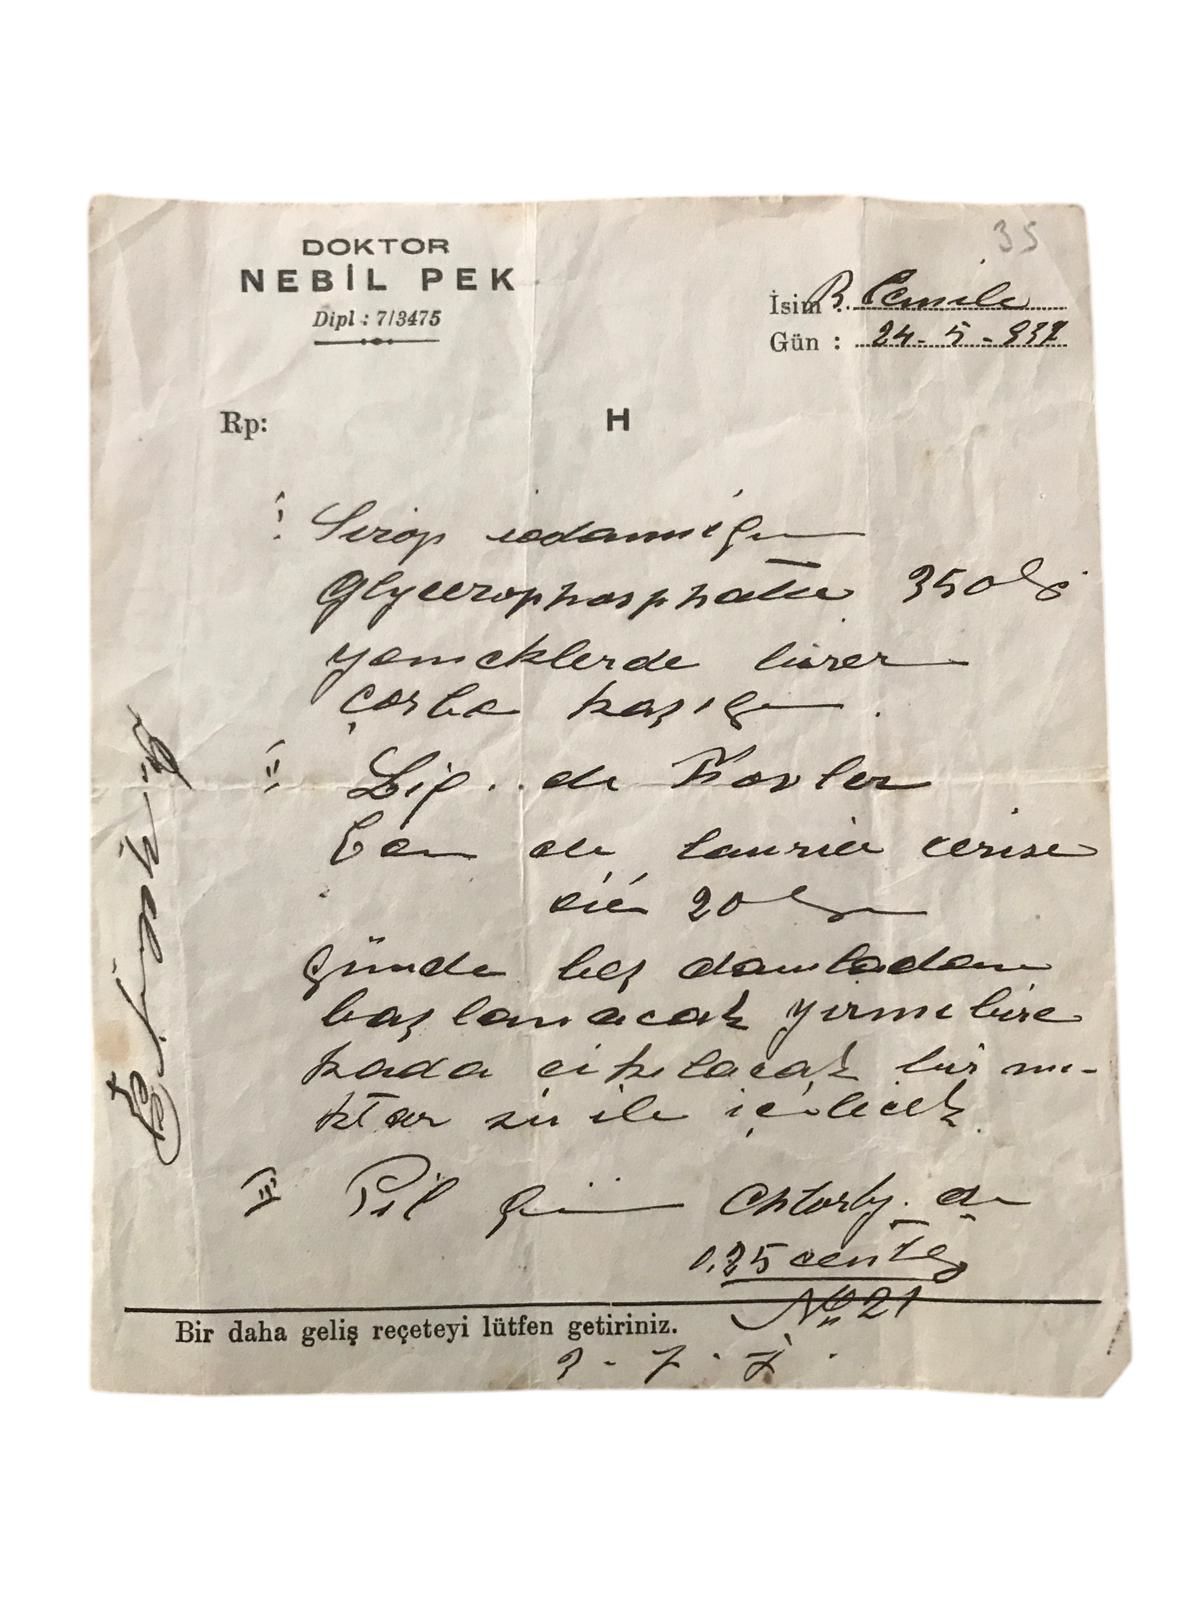 35
DOKTOR
NEBİL PEK
Dipl : 7/3475
İsim : B. Cemile
Gün : 24 - 5 - 937
Rp: H
I Sirop iodannique
Glycerophosphatée 350 Gr
yemeklerde birer
çorba kaşığı.
II Liq. de Fowler
Eau de laurier cerise
āā 20 Gr
günde beş damladan
başlanacak yirmi bire
kada çıkılacak bir mi-
ktar su ile içilecek
III Pil Chlorhy. de
0.25 centg
No 21
Bir daha geliş reçeteyi lütfen getiriniz.